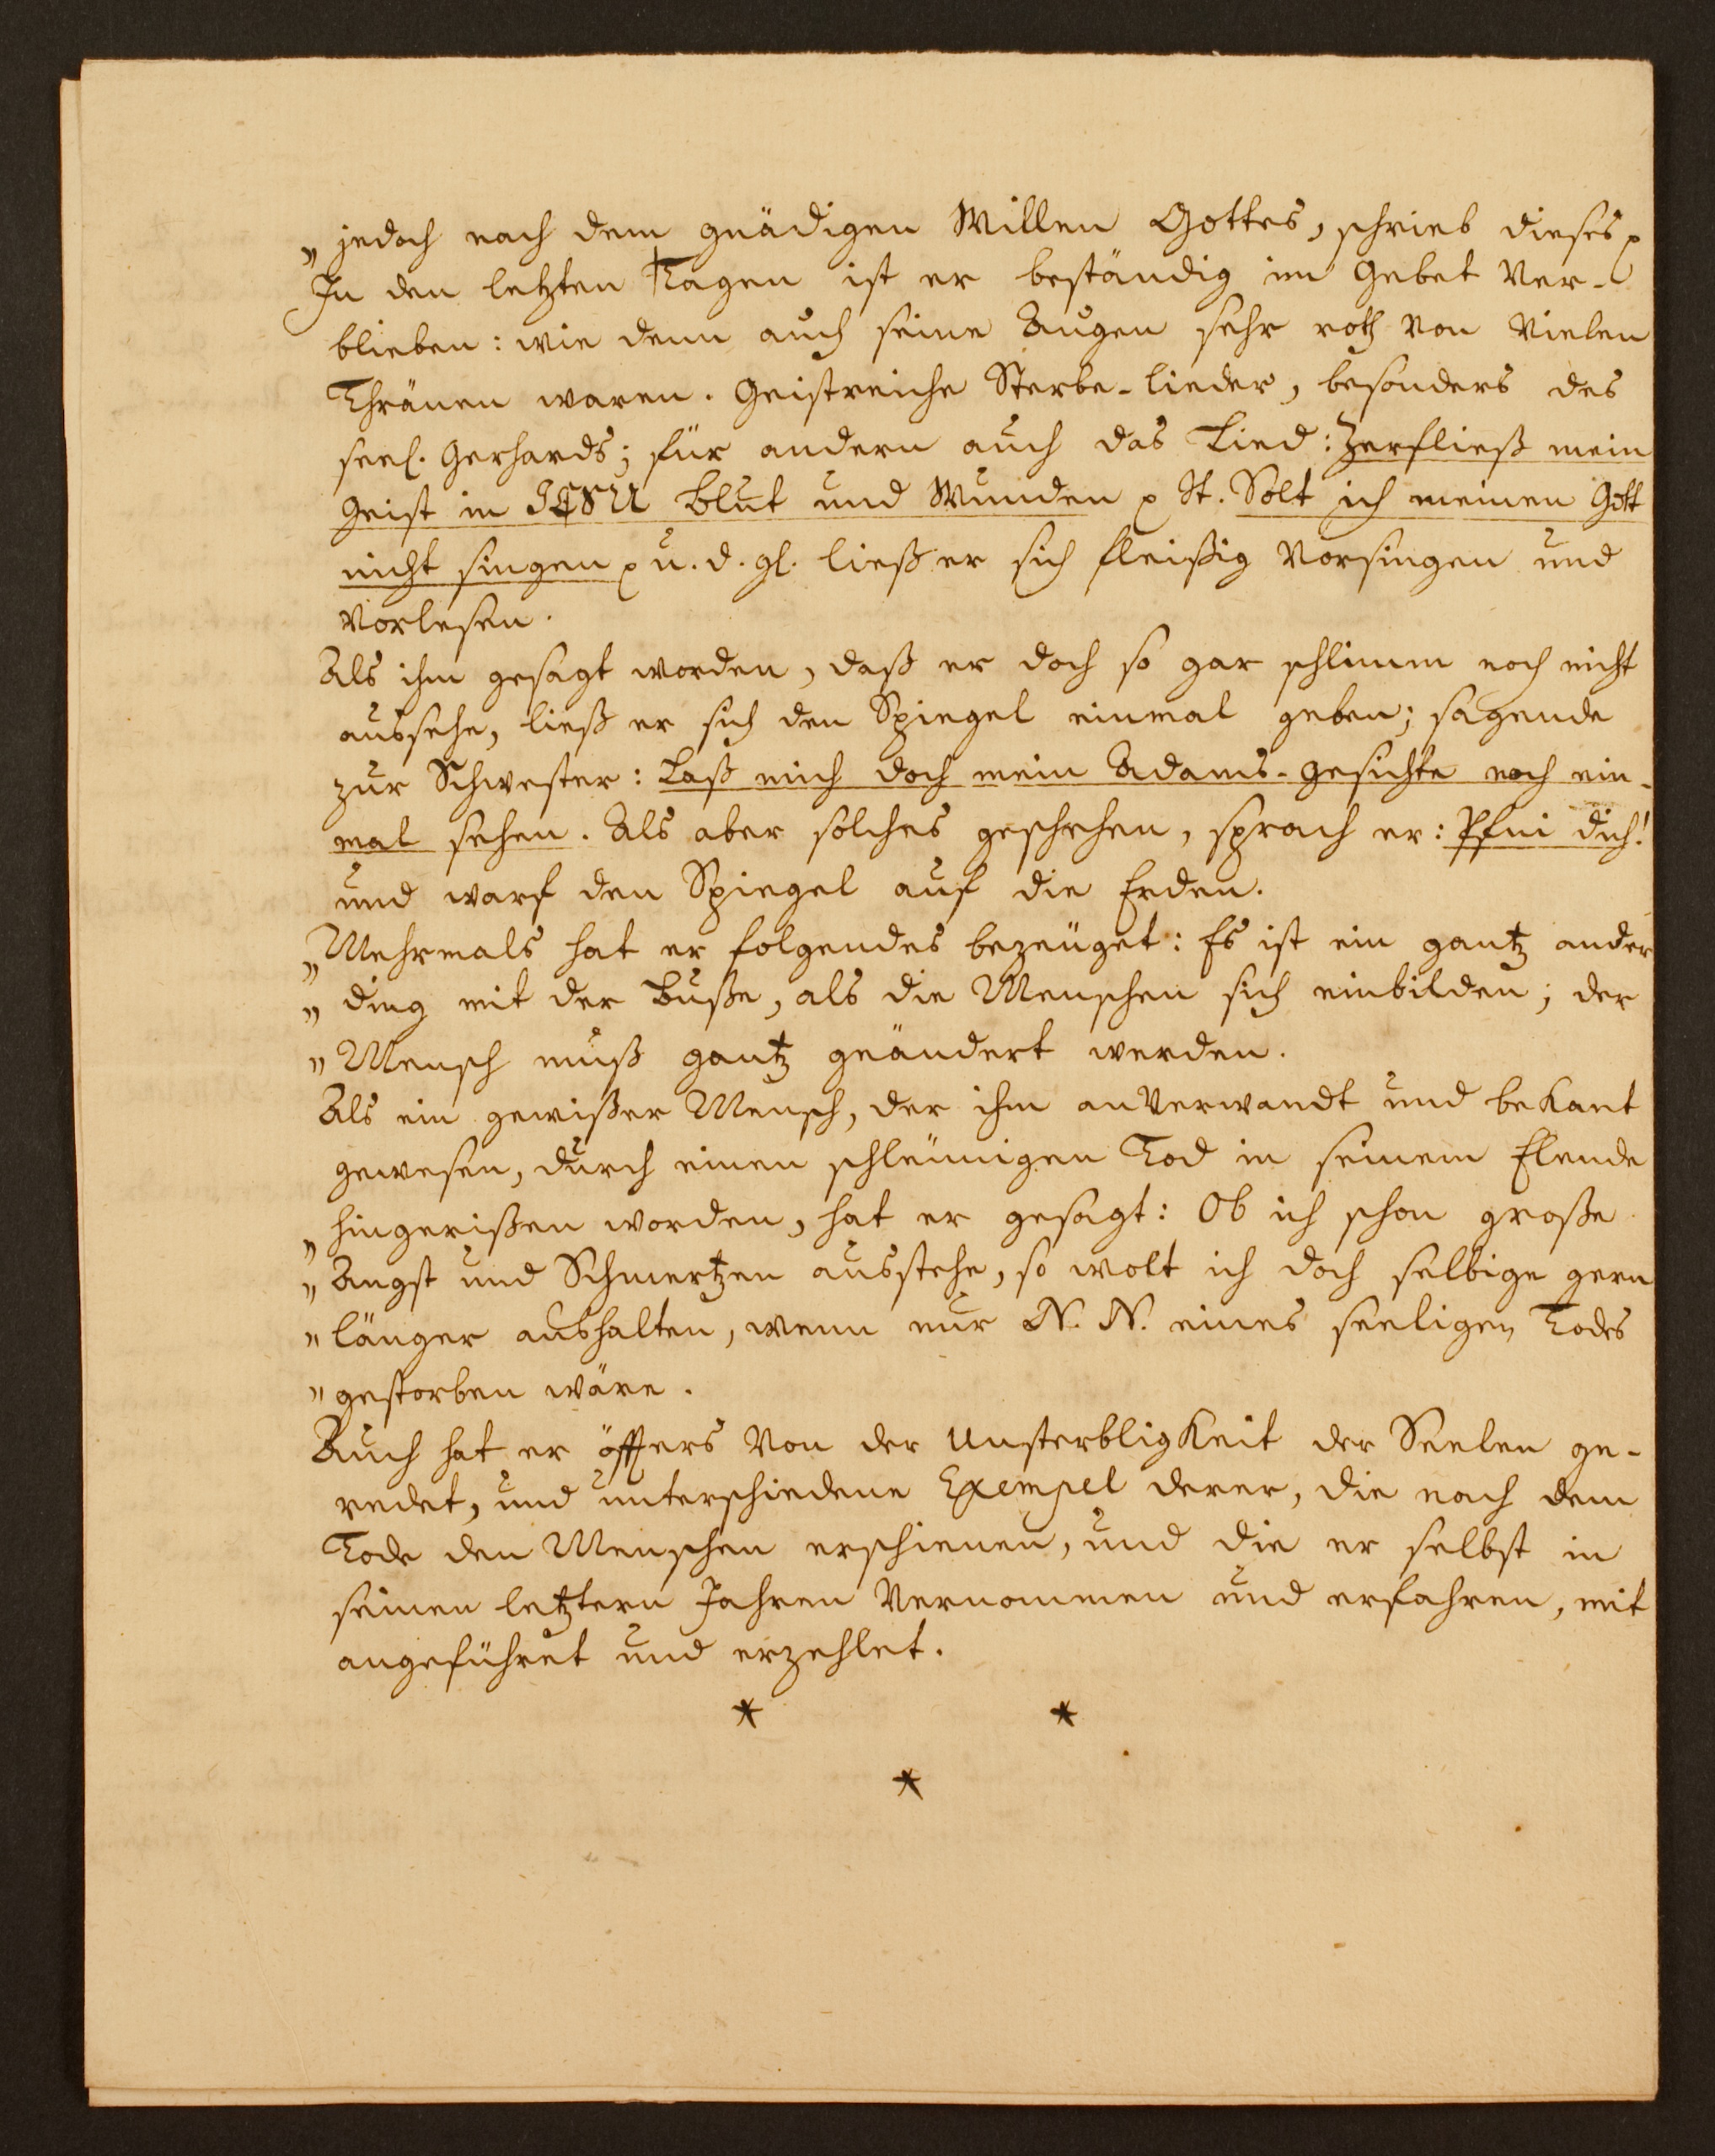 „ jedoch nach dem gnädigen Willen Gottes, schrieb dieses ꝛ
In den letzten Tagen ist er beständig im Gebet ver-
blieben: wie denn auch seine Augen sehr roth von vielen
Thränen waren. Geistreiche Sterbe-Lieder, besonders des
seel. Gerhards; für andern auch das Lied: Zerfließ mein
Geist in JESU Blut und Wunden ꝛ It. Solt ich meinen Gott
nicht singen ꝛ u. d. gl. ließ er sich fleißig vorsingen und
vorlesen.
Als ihm gesagt worden, daß er doch so gar schlimm noch nicht
aussehe, ließ er sich den Spiegel einmal geben; sagende
zur Schwester: Laß mich doch mein Adams-Gesichte noch ein-
mal sehen. Als aber solches geschehen, sprach er: Pfui dich!
und warf den Spiegel auf die Erden.
„ Mehrmals hat er folgendes bezeüget: Es ist ein gantz ander
„ ding mit der Buße, als die Menschen sich einbilden; der
„ Mensch muß gantz geändert werden.
Als ein gewißer Mensch, der ihm anverwandt und bekant
gewesen, durch einen schleünigen Tod in seinem Elende
„ hingerißen worden, hat er gesagt: Ob ich schon große
„ Angst und Schmertzen ausstehe, so wolt ich doch selbige gern
„ länger aushalten, wenn nur N. N. eines seeligen Todes
„ gestorben wäre.
Auch hat er öffters von der Unsterbligkeit der Seelen ge-
redet, und unterschiedene Exempel derer, die nach dem
Tode den Menschen erschienen, und die er selbst in
seinen letztern Jahren vernommen und erfahren, mit
angeführet und erzehlet.
* *
*